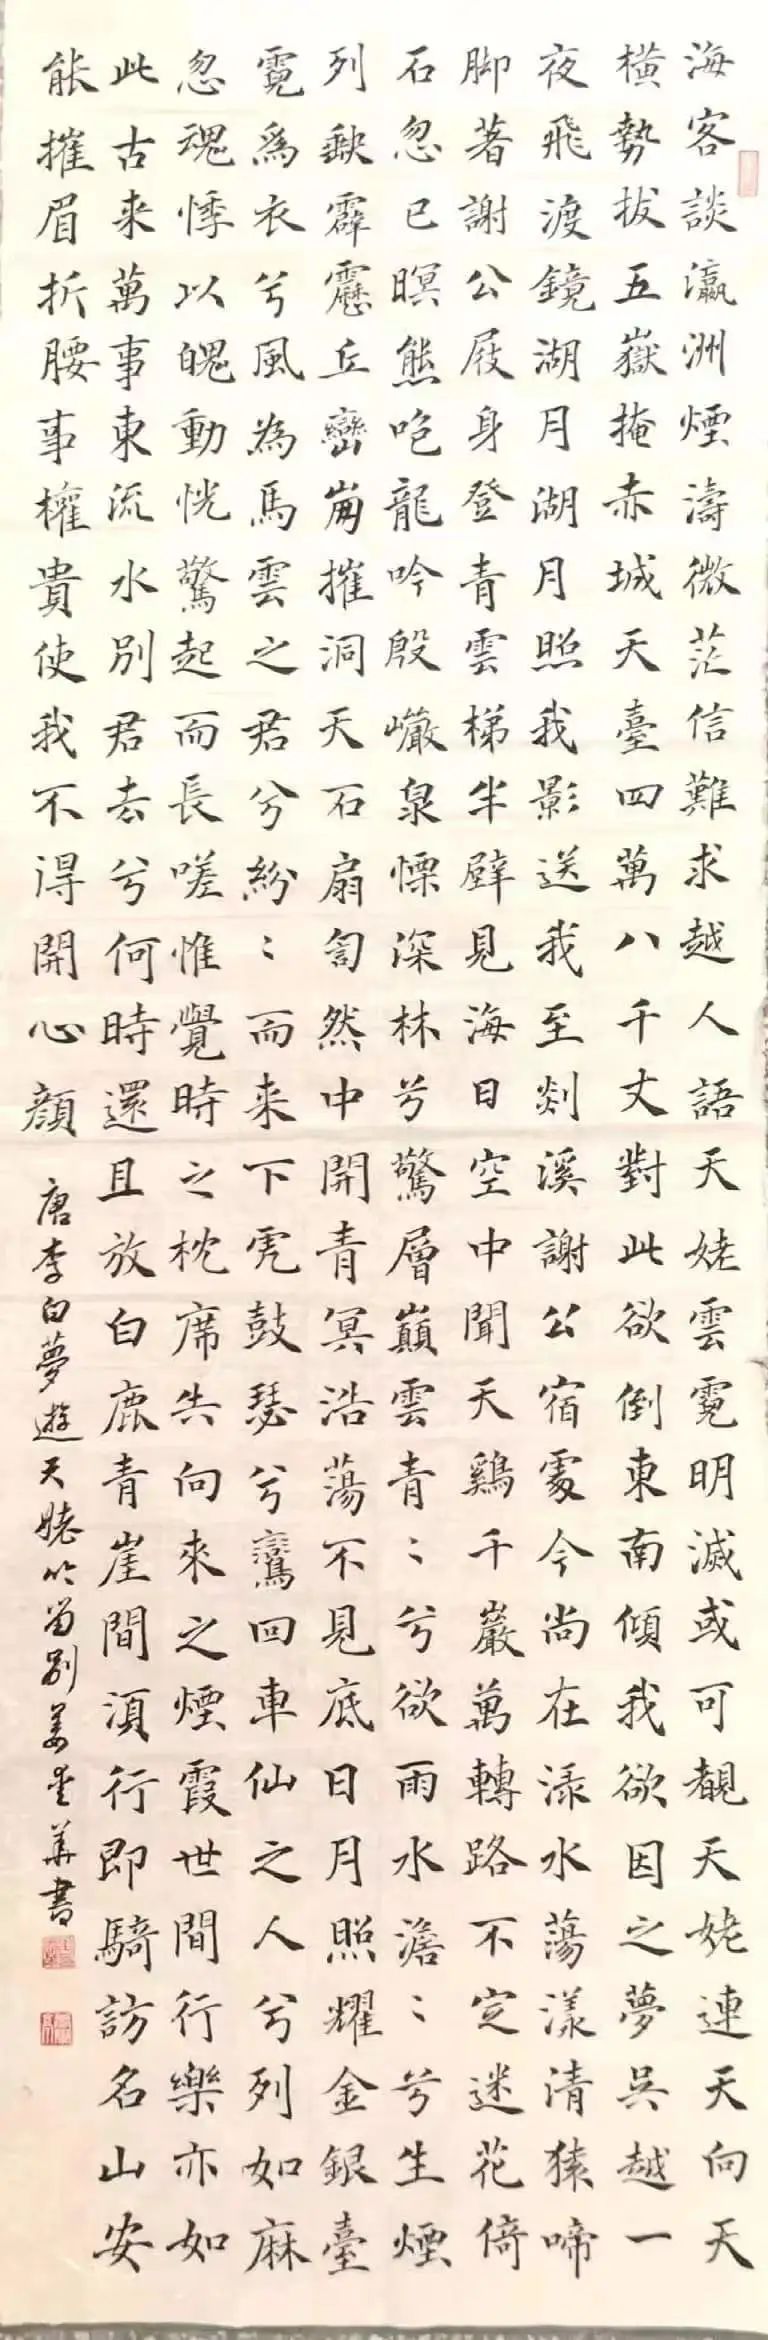 海客談瀛洲煙濤微茫信難求越人語天姥雲霓明滅或可覩天姥連天向天
橫勢拔五嶽掩赤城天臺四萬八千丈對此欲倒東南傾我欲因之夢吳越一
夜飛渡鏡湖月湖月照我影送我至剡溪謝公宿處今尚在淥水蕩漾清猿啼
脚著謝公屐身登青雲梯半壁見海日空中聞天鷄千巖萬轉路不定迷花倚
石忽已暝熊咆龍吟殷巖泉慄深林兮驚層巔雲青〻兮欲雨水澹〻兮生煙
列缺霹靂丘巒崩摧洞天石扇訇然中開青冥浩蕩不見底日月照耀金銀臺
霓為衣兮風為馬雲之君兮紛〻而来下虎鼓瑟兮鸞回車仙之人兮列如麻
忽魂悸以魄動恍驚起而長嗟惟覺時之枕席失向來之煙霞世間行樂亦如
此古来萬事東流水別君去兮何時還且放白鹿青崖間須行即騎訪名山安
能摧眉折腰事權貴使我不得開心顔
唐李白夢遊天姥吟留別姜書